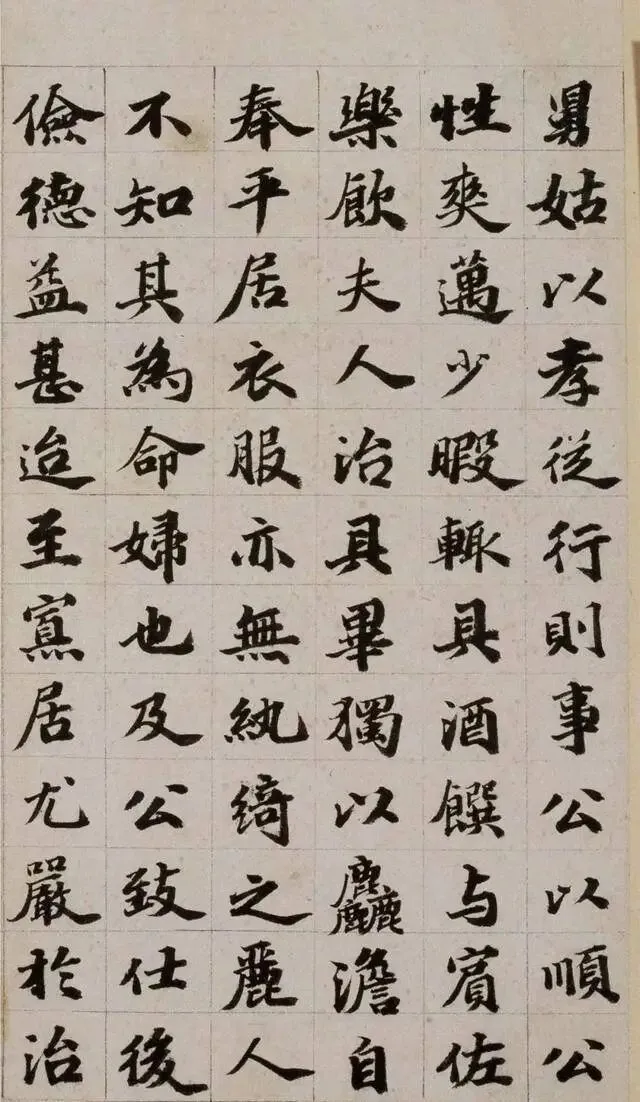 舅姑以孝從行則事公以順公
性爽邁少暇輒具酒饌与賓佐
樂飲夫人治具畢獨以麤澹自
奉平居衣服亦無紈綺之麗人
不知其為命婦也及公致仕後
儉德益甚迨至寡居尤嚴於治